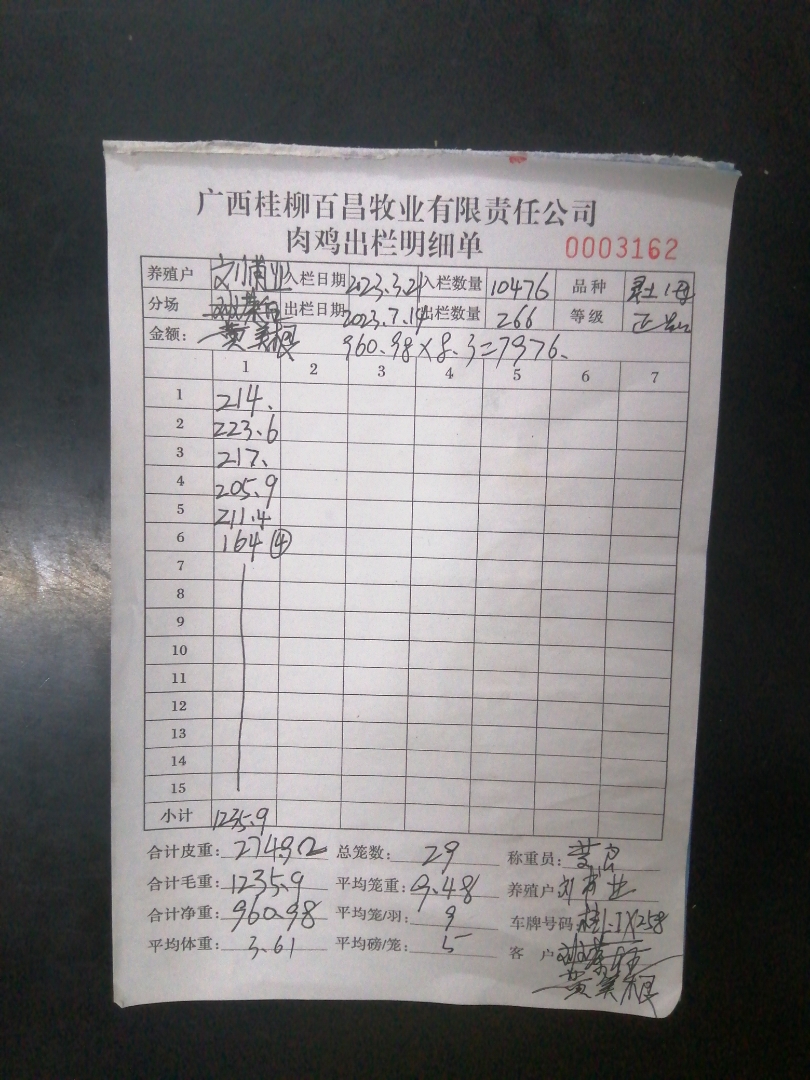 广西桂柳百昌牧业有限责任公司
肉鸡出栏明细单 0003162
养殖户 入栏日期 2023.3.21 入栏数量 10476 品种
分场 出栏日期 2023.7.14 出栏数量 266 等级 正品
金额: 黄美根 960.98×8.3=7976.
1 2 3 4 5 6 7
1 214.
2 223.6
3 217.
4 205.9
5 211.4
6 164 ④
7
8
9
10
11
12
13
14
15
小计 1235.9
合计皮重: 274.92 总笼数: 29 称重员:
合计毛重: 1235.9 平均笼重: 9.48 养殖户
合计净重: 960.98 平均笼/羽: 9 车牌号码:
平均体重: 3.61 平均磅/笼: 5 客户
黄美根